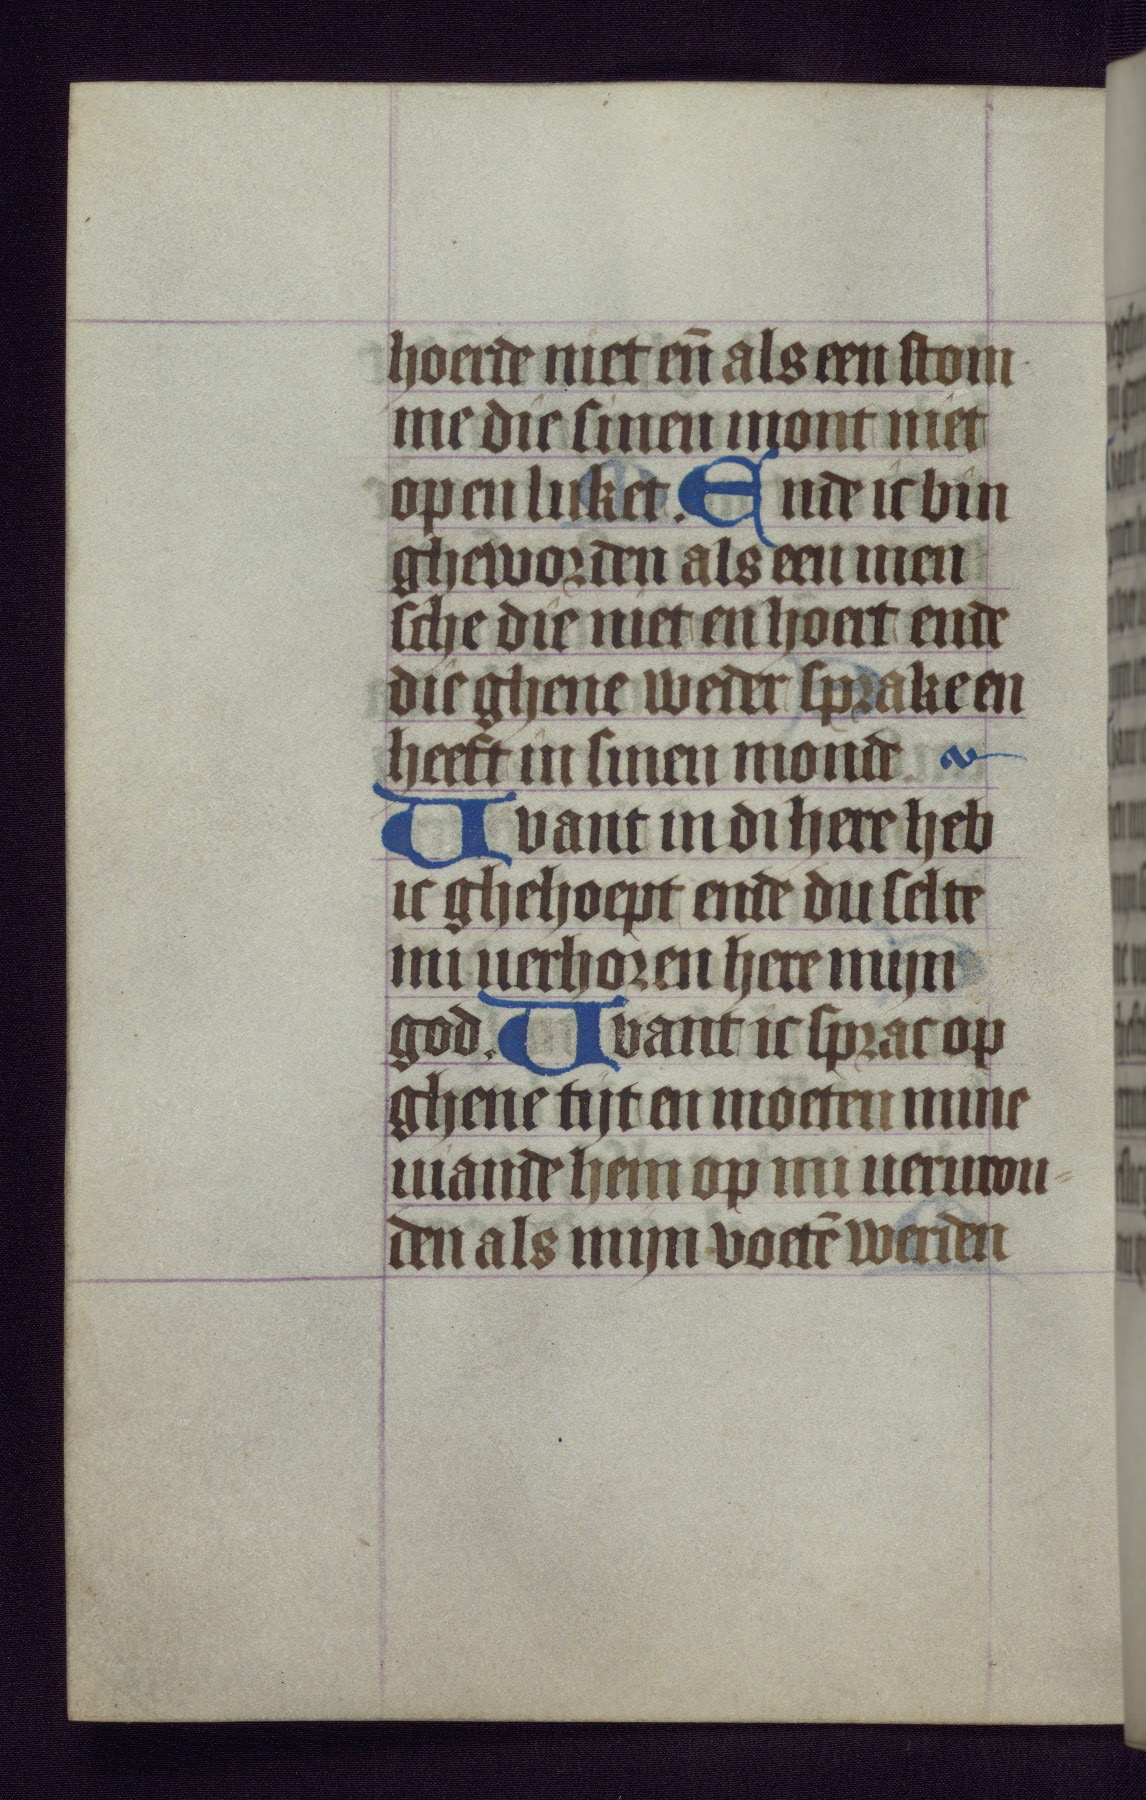 hoerde niet en̄ als een stom
me die sinen mont niet
open luket. Ende ic bin
gheworden als een men
sche die niet en hoert ende
die ghene weder sprake en
heeft in sinen monde.
Uvant in di here heb
ic ghehoept ende du selte
mi uerhoren here mijn
god. Uvant ic sprac op
ghene tijt en moeten mine
uiande hem op mi uerurou-
den als mijn voetē werden